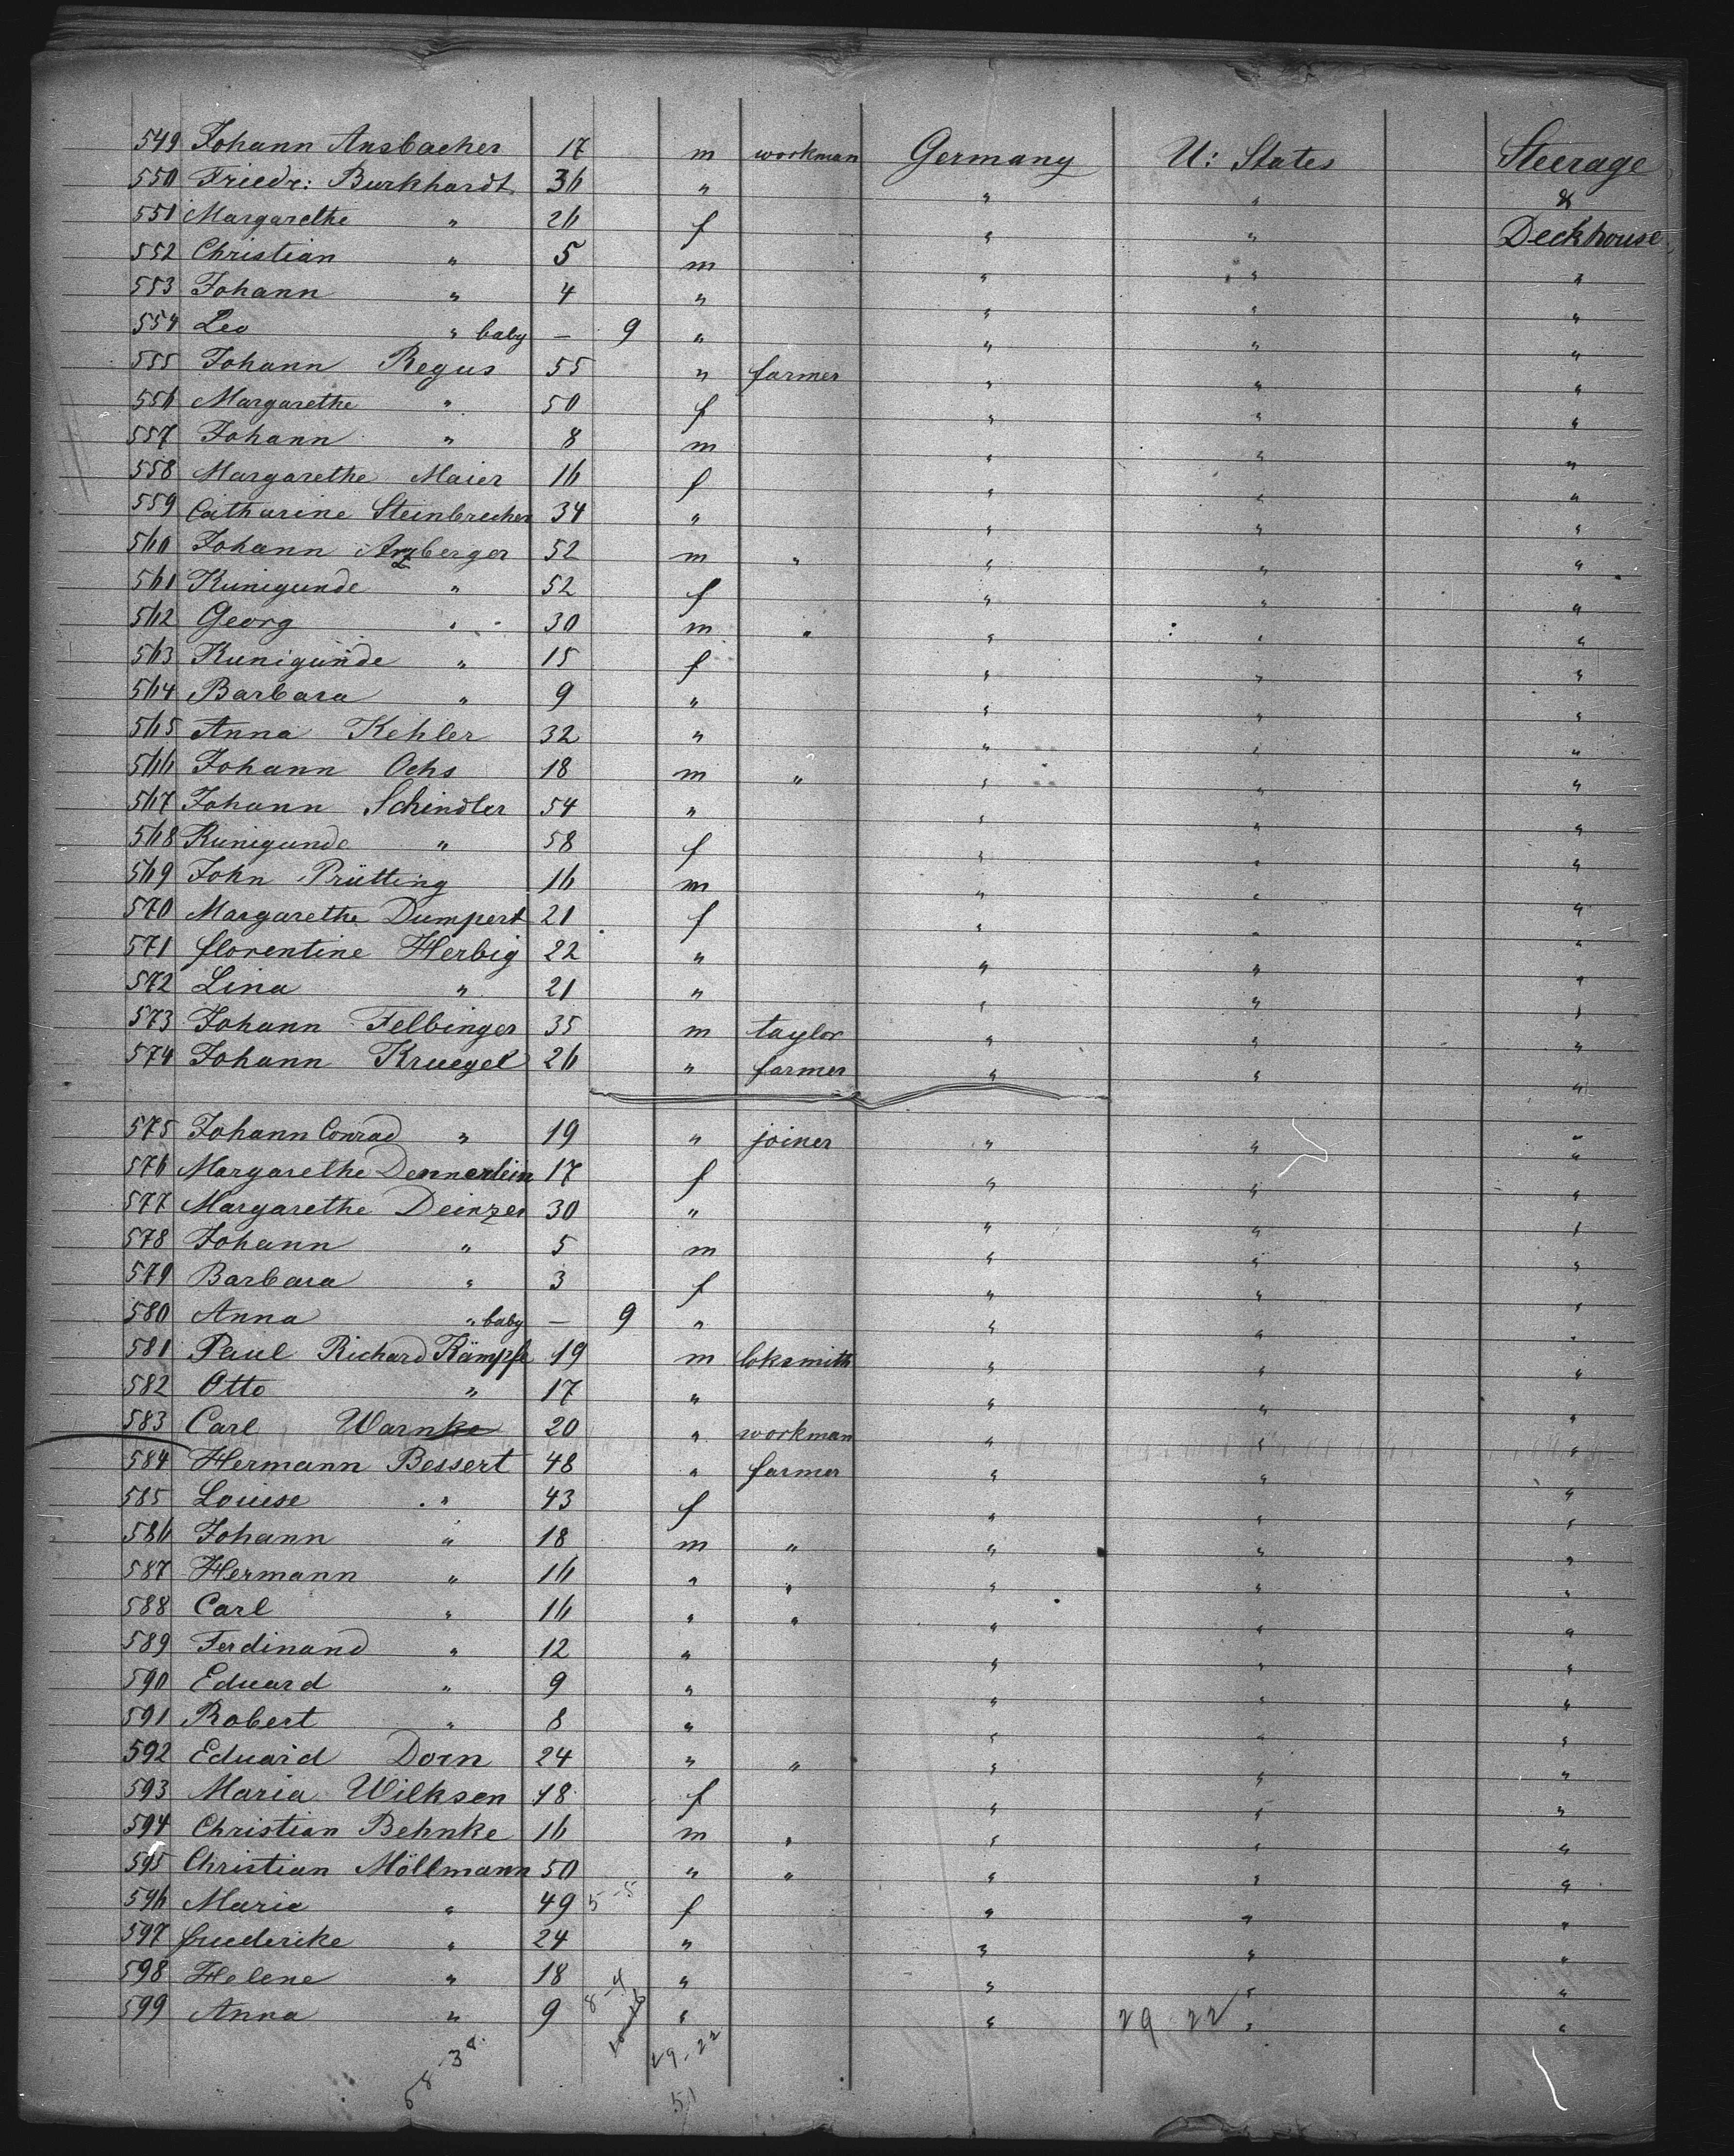 549 Johann Ansbacher 17 m workman Germany U: States Steerage
550 Friedr: Burkhardt 36 " " " &
551 Margarethe " 26 f " " Deckhouse
552 Christian " 5 m " " "
553 Johann " 4 " " " "
554 Leo " baby — 9 " " " "
555 Johann Regus 55 " farmer " " "
556 Margarethe " 50 f " " "
557 Johann " 8 m " " "
558 Margarethe Maier 16 f " " "
559 Catharine Steinbrecher 34 " " " "
560 Johann Arzberger 52 m " " " "
561 Kunigunde " 52 f " " "
562 Georg " 30 m " " " "
563 Kunigunde " 15 f " " "
564 Barbara " 9 " " " "
565 Anna Kehler 32 " " " "
566 Johann Ochs 18 m " " " "
567 Johann Schindler 54 " " " "
568 Kunigunde " 58 f " " "
569 John Prütting 16 m " " "
570 Margarethe Dumpert 21 f " " "
571 Florentine Herbig 22 " " " "
572 Lina " 21 " " " "
573 Johann Felbinger 35 m taylor " " "
574 Johann Kruegel 26 " farmer " " "
575 Johann Conrad " 19 " joiner " " "
576 Margarethe Dennerlein 17 f " " "
577 Margarethe Deinzer 30 " " " "
578 Johann " 5 m " " "
579 Barbara " 3 f " " "
580 Anna " baby — 9 " " " "
581 Paul Richard Kämpfe 19 m loksmith " " "
582 Otto " 17 " " " "
583 Carl Warnke 20 " workman " " "
584 Hermann Bessert 48 " farmer " " "
585 Louise " 43 f " " "
586 Johann " 18 m " " " "
587 Hermann " 16 " " " " "
588 Carl " 16 " " " " "
589 Ferdinand " 12 " " " "
590 Eduard " 9 " " " "
591 Robert " 8 " " " "
592 Eduard Dorn 24 " " " " "
593 Maria Wilksen 18 f " " "
594 Christian Behnke 16 m " " " "
595 Christian Möllmann 50 " " " " "
596 Marie " 49 5-5 f " " "
597 Friederike " 24 " " " "
598 Helene " 18 " " " "
599 Anna " 9 8-4 " " 29 22 " "
29-22
58-38
51